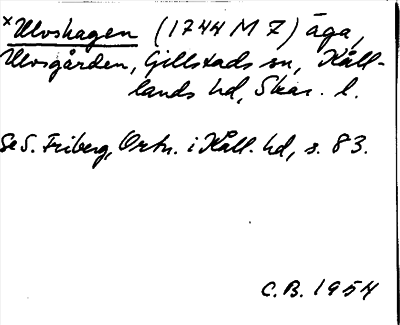 ×Ulvshagen (1744 M 7) äga,
Ulvsgården, Gillstads sn, Kåll-
lands hd, Skar. l.
Se S. Friberg, Ortn. i Kåll. hd, s. 83.
C.B. 1954